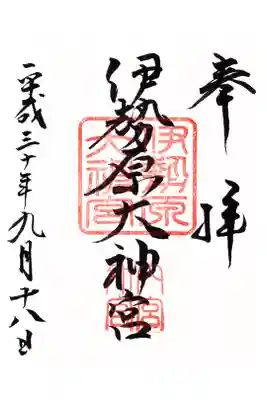 奉拝
伊勢原大神宮
伊勢原
大神宮
平成三十年九月十八日